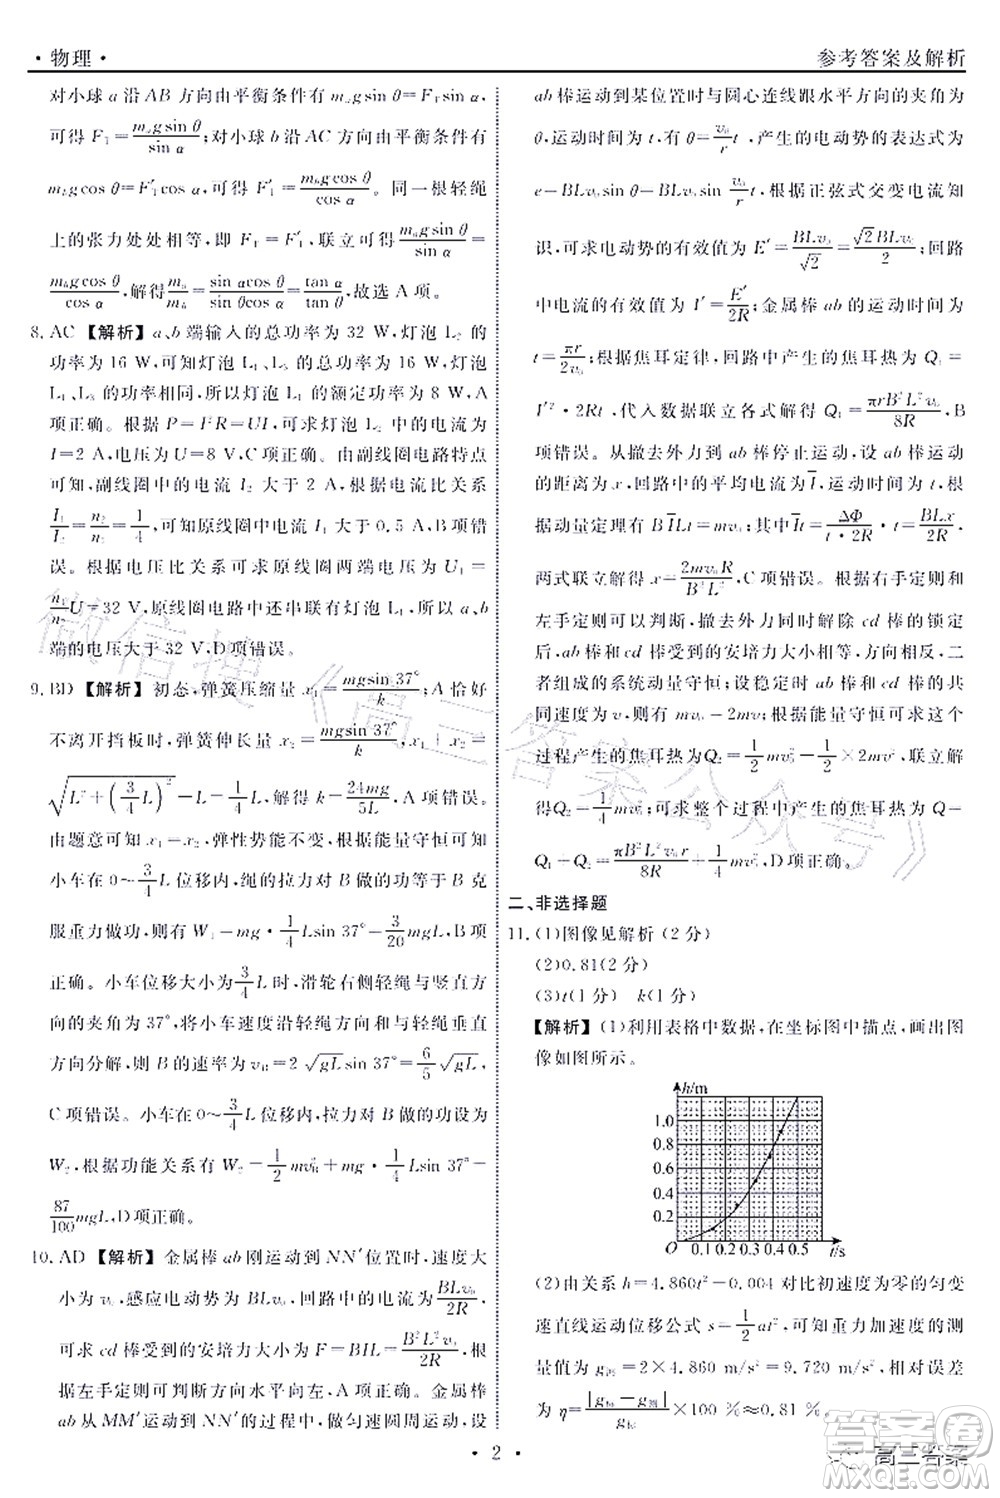 · 物理 ·
参考答案及解析
对小球 a 沿 AB 方向由平衡条件有 mₐg sin θ = F_T sin α
可得 F_T = mₐg sin θ / sin α ;对小球 b 沿 AC 方向由平衡条件有
m_b g cos θ = F′_T cos α,可得 F′_T = m_b g cos θ / cos α。同一根轻绳
上的张力处处相等,即 F_T = F′_T,联立可得 mₐg sin θ / sin α =
m_b g cos θ / cos α,解得 mₐ/m_b = sin α cos θ / sin θ cos α = tan α / tan θ,故选 A 项。
8. AC 【解析】a、b 端输入的总功率为 32 W,灯泡 L₂ 的
功率为 16 W,可知灯泡 L₁、L₃ 的总功率为 16 W,灯泡
L₁、L₃ 的功率相同,所以灯泡 L₁ 的额定功率为 8 W,A
项正确。根据 P = I²R = UI,可求灯泡 L₂ 中的电流为
I = 2 A,电压为 U = 8 V,C 项正确。由副线圈电路特点
可知,副线圈中的电流 I₂ 大于 2 A,根据电流比关系
I₁/I₂ = n₂/n₁ = 1/4,可知原线圈中电流 I₁ 大于 0.5 A,B 项错
误。根据电压比关系可求原线圈两端电压为 U₁ =
n₁/n₂ U = 32 V,原线圈电路中还串联有灯泡 L₁,所以 a、b
端的电压大于 32 V,D 项错误。
9. BD 【解析】初态,弹簧压缩量 x₁ = mg sin 37° / k ;A 恰好
不离开挡板时,弹簧伸长量 x₂ = mg sin 37° / k,x₁ + x₂ =
√(L² + (3/4 L)²) − L,解得 k = 24mg/5L,A 项错误。
由题意可知 x₁ = x₂,弹性势能不变,根据能量守恒可知
小车在 0~3/4 L 位移内,绳的拉力对 B 做的功等于 B 克
服重力做功,有 W₁ = mg · 1/4 L sin 37° = 3/20 mgL,B 项正
确。小车位移大小为 3/4 L 时,滑轮右侧轻绳与竖直方
向的夹角为 37°,将小车速度沿轻绳方向和轻绳垂直
方向做分解,则 B 的速率为 v_B = 2√gL sin 37° = 6/5 √gL,
C 项错误。小车在 0~3/4 L 位移内,拉力做的功设为
W₂,根据功能关系可知 W₂ = 1/2 mv_B² + mg · 1/4 L sin 37° =
87/100 mgL,D 项正确。
10. AD 【解析】金属棒 ab 刚运动到 NN′ 位置时,速度大
小为 v₀,感应电动势为 BLv₀,回路中的电流为 BLv₀/2R,
可求 cd 棒受到的安培力大小为 F = BIL = B²L²v₀/2R,根据
左手定则可判断方向水平向左,A 项正确。金属棒
ab 从 MM′ 运动到 NN′ 的过程中,做匀速圆周运动,设
ab 棒运动到某位置时与圆心连线跟水平方向的夹角为
θ,运动时间为 t,有 θ = v₀/r t,产生的电动势的表达式为
e = BLv₀ sin θ = BLv₀ sin v₀/r t,根据正弦式交变电流知
识,可求电动势的有效值为 E′ = BLv₀/√2 = √2BLv₀/2 ;回路
中电流的有效值为 I′ = E′/2R ;金属棒 ab 的运动时间为
t = πr/2v₀ ;根据焦耳定律,回路中产生的焦耳热为 Q₁ =
I′² · 2Rt,代入数据联立各式解得 Q₁ = πrB²L²v₀/8R,B
项错误。撤去外力到 ab 棒停止运动,ab 棒运动的
距离为 x,回路中的平均电流为 I̅,运动时间为 t,根
据动量定理有 BI̅Lt = mv₀;其中 I̅t = ΔΦ/(t·2R) · t = BLx/2R,
两式联立解得 x = 2mv₀R/B²L²,C 项错误。根据右手定则和
左手定则可以判断,撤掉外力和 cd 棒的锁定
后,ab 棒和 cd 棒受到的安培力大小相等,方向相反,二
者组成的系统动量守恒,设稳定时 ab 棒和 cd 棒的共
同速度为 v,则有 mv₀ = 2mv;根据能量守恒可求这个
过程产生的焦耳热为 Q₂ = 1/2 mv₀² − 1/2 × 2mv²,联立解
得 Q₂ = 1/4 mv₀² ;可求整个过程中产生的焦耳热为 Q =
Q₁ + Q₂ = πB²L²v₀r/8R + 1/4 mv₀²,D 项正确。
二、非选择题
11. (1)图像见解析(2 分)
(2)0.81(2 分)
(3)t(1 分) k(1 分)
【解析】(1)利用表格中数据,在坐标图中描点,画出图
像如图所示。
h/m
1.0
0.8
0.6
0.4
0.2
O 0.1 0.2 0.3 0.4 0.5 t/s
(2)由关系 h = 4.860t² − 0.004 对比初速度为零的匀变
速直线运动位移公式 s = 1/2 at²,可知重力加速度的测
量值为 g测 = 2 × 4.860 m/s² = 9.720 m/s²,相对误差
为 η = |g标 − g测| / g标 × 100 % = 0.81 %。
· 2 ·
微信搜《高三答案公众号》
高三答案
答案圈
MXQE.COM